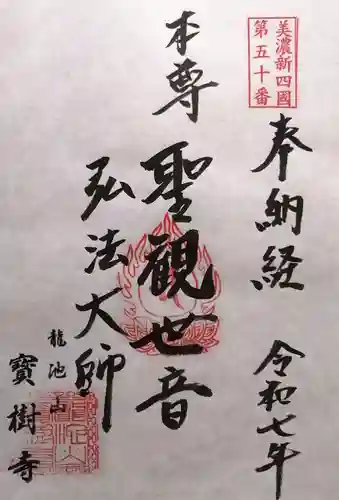 美濃新四國
第五十番
奉納経
令和七年
本尊
聖観世音
弘法大師
龍池山
寶樹寺